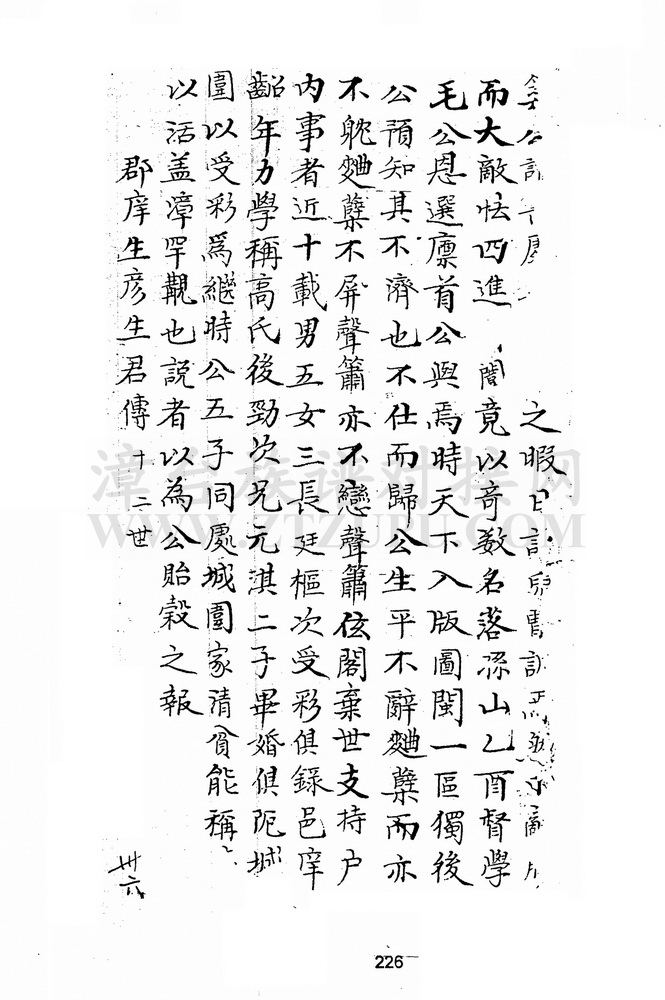 公
之暇日
而大敵怯四進 闈竟以奇数名落孫山乙酉督學
毛公恩選廪首公與焉時天下入版圖閩一區獨後
公預知其不濟也不仕而歸公生平不辭麯蘖而亦
不躭麯蘖不屏聲簫亦不戀聲簫伭閣棄世支持户
内事者近十載男五女三長廷樞次受彩俱錄邑庠
齠年力學稱高氏後勁次兄元淇二子畢婚俱阨城
圍以受彩爲繼時公五子同處城圍家清貧能稱
以活盖漳罕覯也説者以為公貽穀之報
郡庠生彦生君傳 十二世
卅六
226
漳台族谱对接网
WWW.ZTZUPU.COM